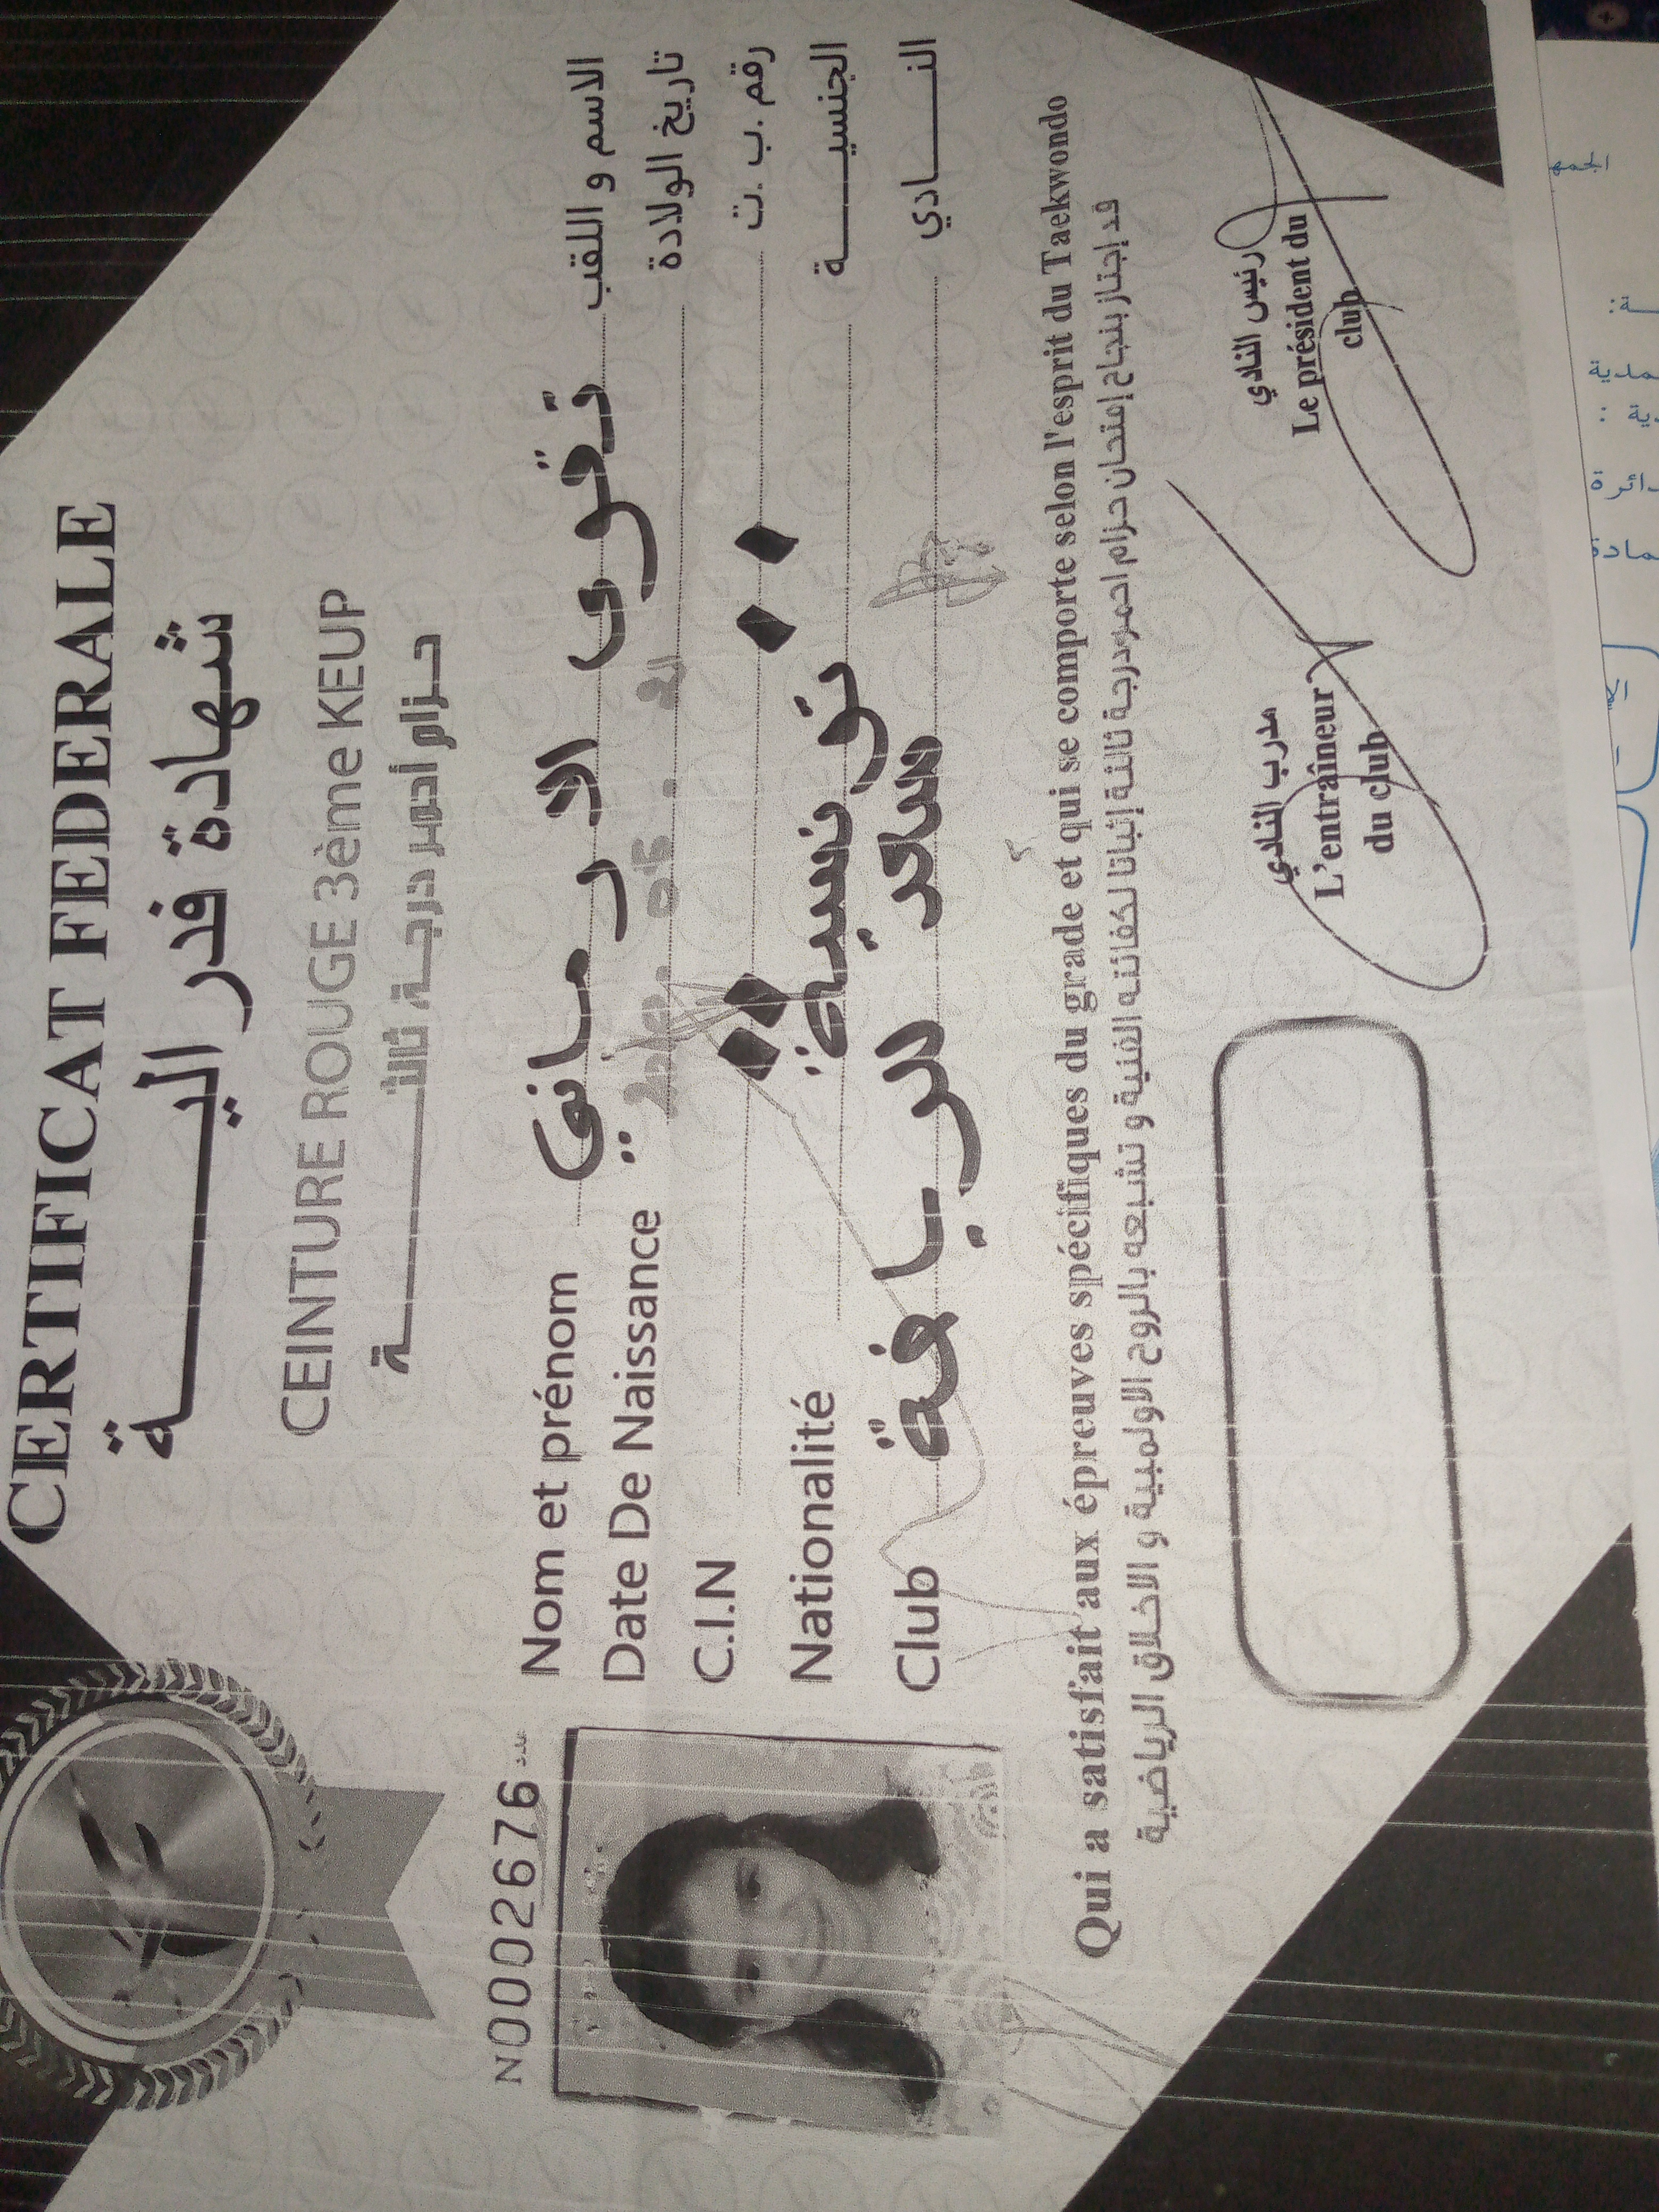 CERTIFICAT FEDERALE
شهادة فدراليـــــــة
CEINTURE ROUGE 3ème KEUP
حزام أحمر درجة ثالثـــــــة
N0002676 عدد
Nom et prénom تقوى الرماني الاسم و اللقب
Date De Naissance تاريخ الولادة
C.I.N رقم .ب .ت
Nationalité تونسية الجنسيـــــة
Club الرياضة النـــــادي
Qui a satisfait aux épreuves spécifiques du grade et qui se comporte selon l'esprit du Taekwondo
قد إجتاز بنجاح إمتحان حزام احمردرجة ثالثة إثباتا لكفائته الفنية و تشبعه بالروح الاولمبية و الاخلاق الرياضية
مدرب النادي
L'entraîneur
du club
رئيس النادي
Le président du
club